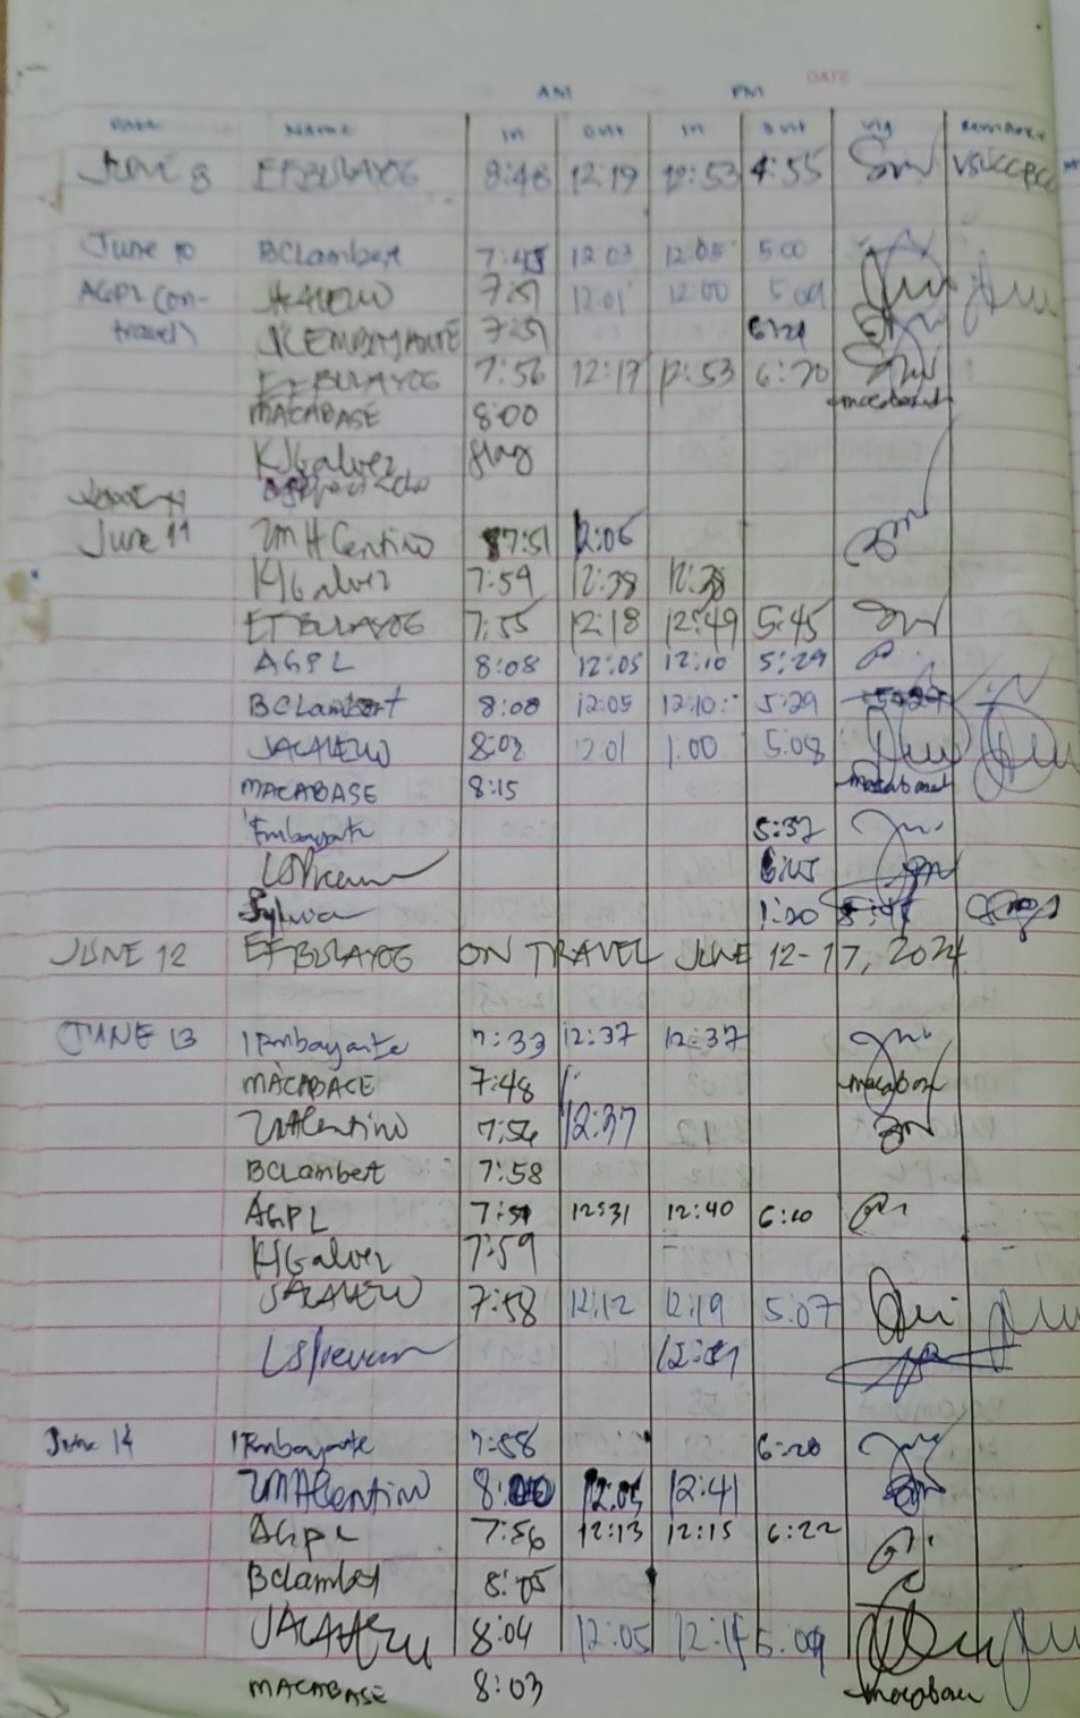 DATE
AM PM
Date Name In Out In Out Sig Remarks
JUNE 8 EFBULAYOG 8:48 12:19 12:53 4:55
June 10 BCLambert 7:45 12:03 12:05 5:00
AGPL (on- JACALERO 7:51 12:01 12:00 5:09
travel) EMBAYANTE 7:51 6:21
EFBULAYOG 7:56 12:17 12:53 6:20
MACABASE 8:00 macabase
KJGalvez flag
June 11 ZMHCentino 7:51 12:06
KJGalvez 7:59 12:38 12:38
EFBULAYOG 7:55 12:18 12:49 5:45
AGPL 8:08 12:05 12:10 5:29
BCLambert 8:00 12:05 12:10 5:29 5:29
JACALERO 8:03 12:01 1:00 5:08
MACABASE 8:15 macabase
Embayante 5:37
Sylvia 1:20 5:45
JUNE 12 EFBULAYOG ON TRAVEL JUNE 12-17, 2024
JUNE 13 Embayante 7:33 12:37 12:37
MACABACE 7:48 macabase
7:56 12:37
BCLambert 7:58
AGPL 7:59 12:31 12:40 6:10
KJGalvez 7:59
JACALERO 7:58 12:12 12:19 5:07
June 14 Embayante 7:58 6:20
ZMHCentino 8:00 12:05 12:41
AGPL 7:56 12:13 12:15 6:22
BCLambert 8:05
JACALERO 8:04 12:05 12:14 5:09
MACABASE 8:03 macabase